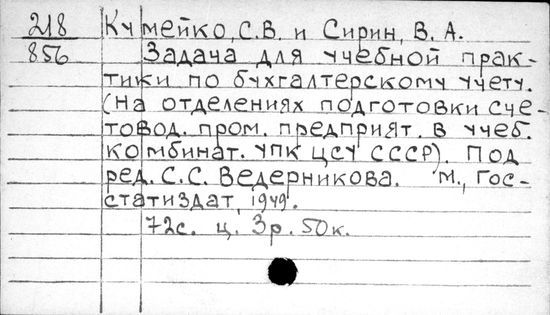 218 Кумейко, С.В. и Сирин, В. А.
856 Задача для учебной прак-
тики по бухгалтерскому учету.
(на отделениях подготовки сче-
товод. пром. предприят. в учеб.
комбинат. УПК ЦСУ СССР). Под
ред. С.С. Ведерникова. М., Гос-
статиздат, 1949.
72с. ц. 3р. 50к.